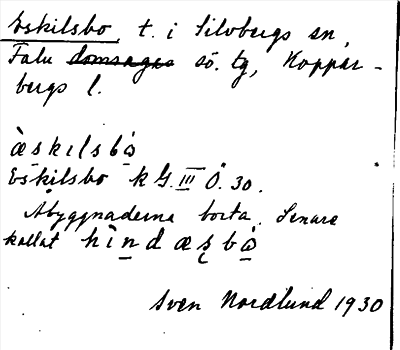 Eskilsbo, t. i Silvbergs sn,
Falu domsagas sö. tg, Koppar-
bergs l.
æ̀skılsbὼ
Eskilsbo k G.III Ö. 30.
Åbyggnaderna borta. Senare
kallat hı̀ndæşbὼ
Sven Nordlund 1930